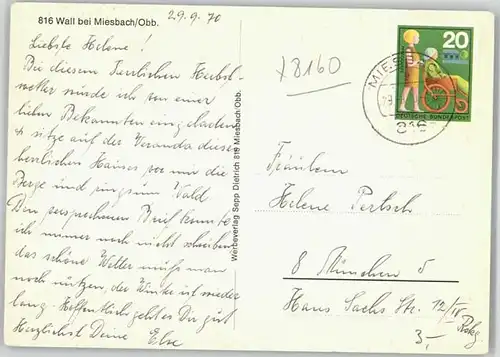 816 Wall bei Miesbach/Obb.
29.9.70
Liebste Helene!
Bei diesem herrlichen Herbst-
wetter wurde ich von einer
lieben Bekannten eingeladen
& sitze auf der Veranda dieses
herrlichen Hauses vor mir die
Berge und ringsum Wald
Den versprochenen Brief konnte
ich immer noch nicht schreiben
das schöne Wetter muß man
noch nützen, der Winter ist wieder
lang. Hoffentlich geht es Dir gut
Herzlichst Deine Else
Werbeverlag Sepp Dietrich 819 Miesbach/Obb.
x8160
20
DEUTSCHE BUNDESPOST
816
Fräulein
Helene Pertsch
8 München 5
Hans Sachs Str. 12/IV
Rckg
3,-